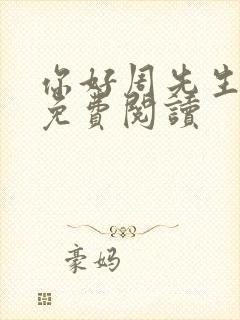 你好周先生
免費閱讀
豪妈